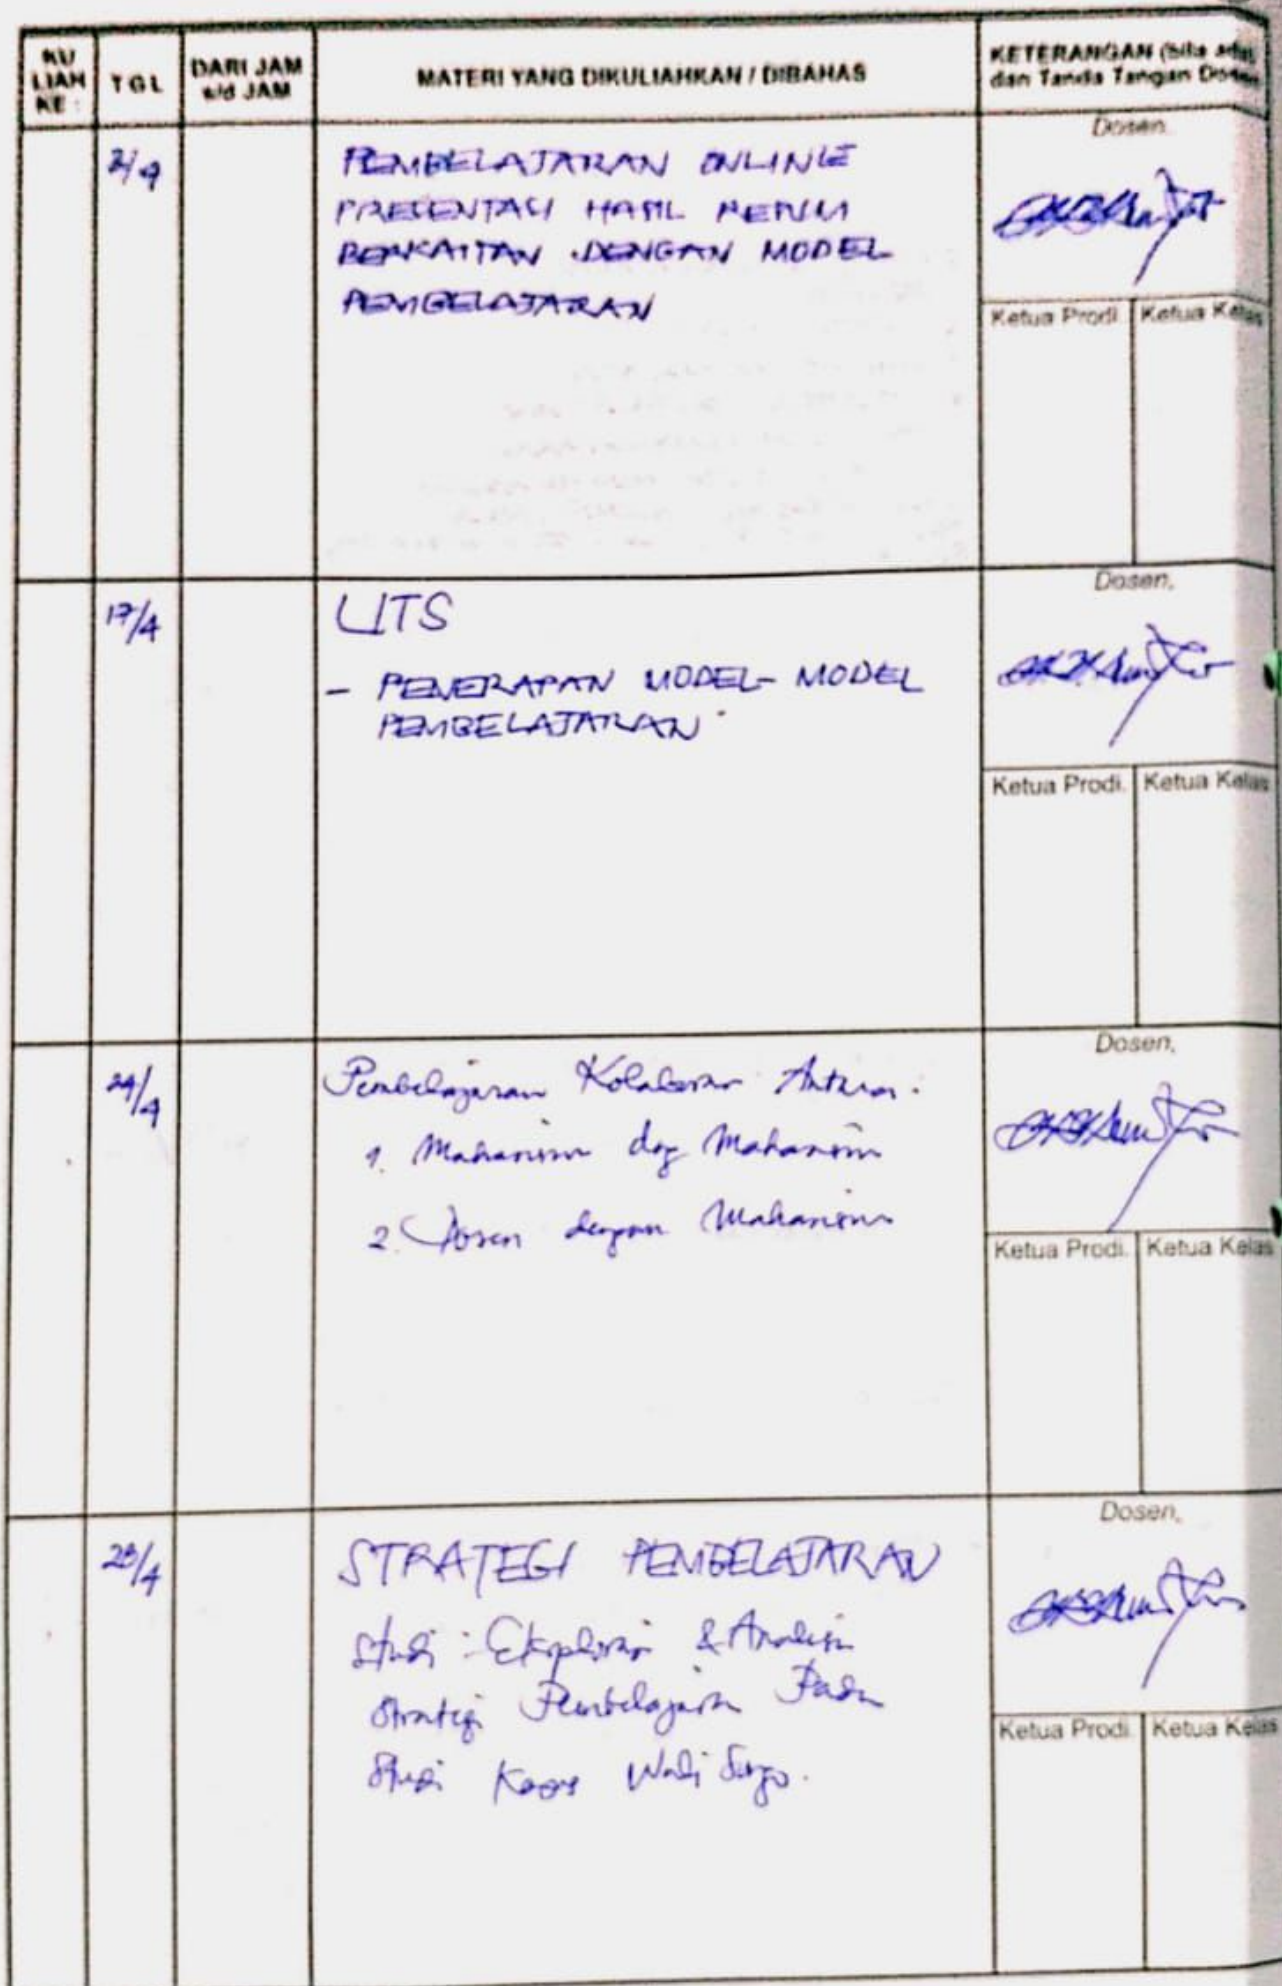 KU
LIAH
KE :
TGL
DARI JAM
s/d JAM
MATERI YANG DIKULIAHKAN / DIBAHAS
KETERANGAN (bila ada)
dan Tanda Tangan Dosen
2/4
PEMBELAJARAN ONLINE
PRESENTASI HASIL
BERKAITAN DENGAN MODEL
PEMBELAJARAN
Dosen.
Ketua Prodi. Ketua Kelas
17/4
UTS
- PENERAPAN MODEL-MODEL
PEMBELAJARAN
Dosen,
Ketua Prodi. Ketua Kelas
24/4
Pembelajaran Kolaborasi Antara.
1. Mahasiswa dg Mahasiswa
2. Dosen dengan Mahasiswa
Dosen,
Ketua Prodi. Ketua Kelas
28/4
STRATEGI PEMBELAJARAN
Studi : Eksplorasi & Analisis
Strategi Pembelajaran Pada
Studi Kasus Wali Songo.
Dosen,
Ketua Prodi. Ketua Kelas